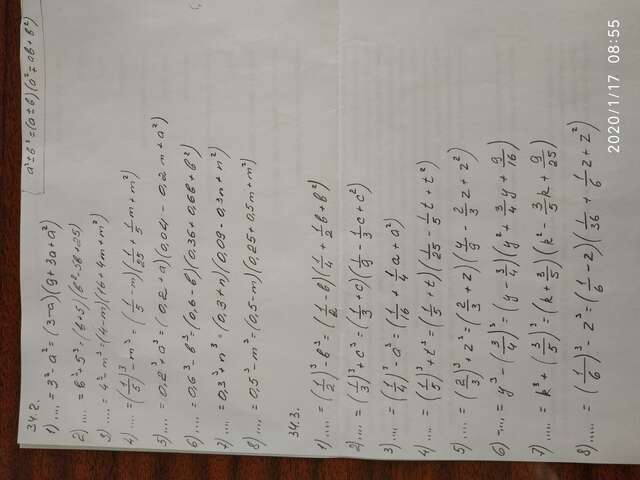 a³±b³=(a±b)(a²∓ab+b²)
34.2.
1) .... = 3³-a³=(3-a)(9+3a+a²)
2) .... = b³+5³=(b+5)(b²-5b+25)
3) .... = 4³-m³=(4-m)(16+4m+m²)
4) .... = (1/5)³-m³=(1/5-m)(1/25+1/5m+m²)
5) .... = 0,2³+a³=(0,2+a)(0,04-0,2m+a²)
6) .... = 0,6³-b³=(0,6-b)(0,36+0,6b+b²)
7) .... = 0,3³+n³=(0,3+n)(0,09-0,3n+n²)
8) .... = 0,5³-m³=(0,5-m)(0,25+0,5m+m²)
34.3.
1) .... = (1/2)³-b³=(1/2-b)(1/4+1/2b+b²)
2) .... = (1/3)³+c³=(1/3+c)(1/9-1/3c+c²)
3) .... = (1/4)³-a³=(1/16+1/4a+a²)
4) .... = (1/5)³+t³=(1/5+t)(1/25-1/5t+t²)
5) .... = (2/3)³+z³=(2/3+z)(4/9-2/3z+z²)
6) .... = y³-(3/4)³=(y-3/4)(y²+3/4y+9/16)
7) .... = k³+(3/5)³=(k+3/5)(k²-3/5k+9/25)
8) ..... = (1/6)³-z³=(1/6-z)(1/36+1/6z+z²)
2020/1/17 08:55